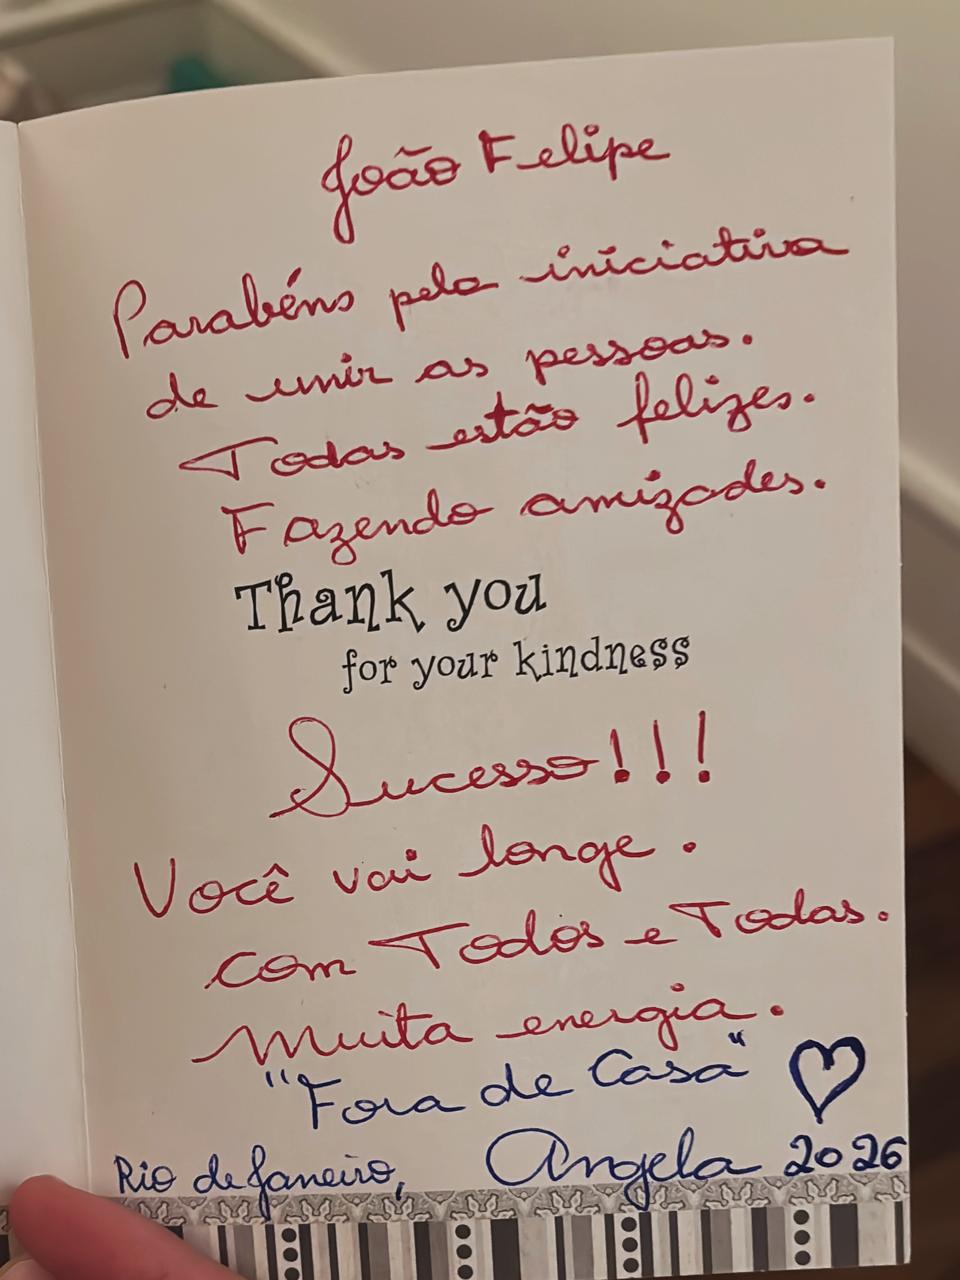 João Felipe
Parabéns pela iniciativa
de unir as pessoas.
Todas estão felizes.
Fazendo amizades.
Thank you
for your kindness
Sucesso!!!
Você vai longe.
com Todos e Todas.
Muita energia.
"Fora de Casa"
Rio de Janeiro, Angela 2026